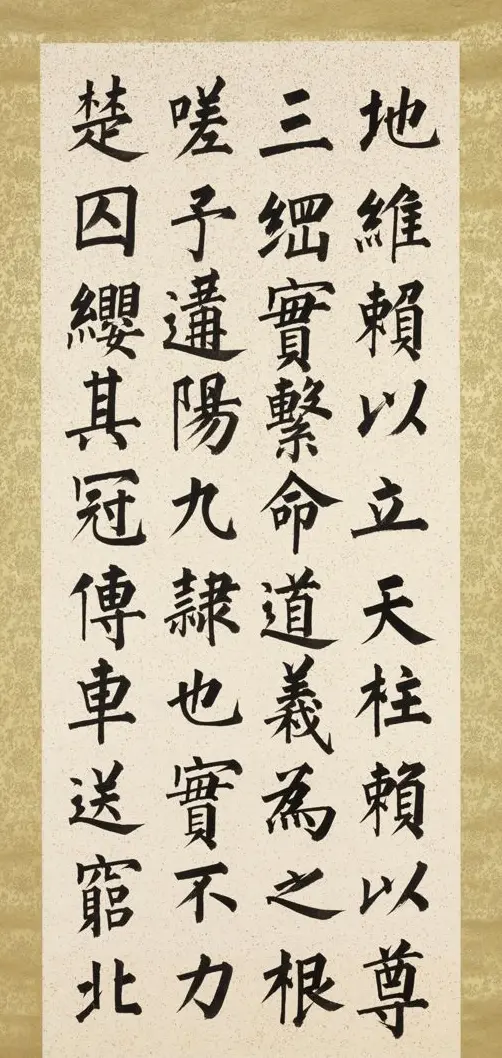 地維賴以立天柱賴以尊
三綱實繫命道義為之根
嗟予遘陽九隷也實不力
楚囚纓其冠傳車送窮北